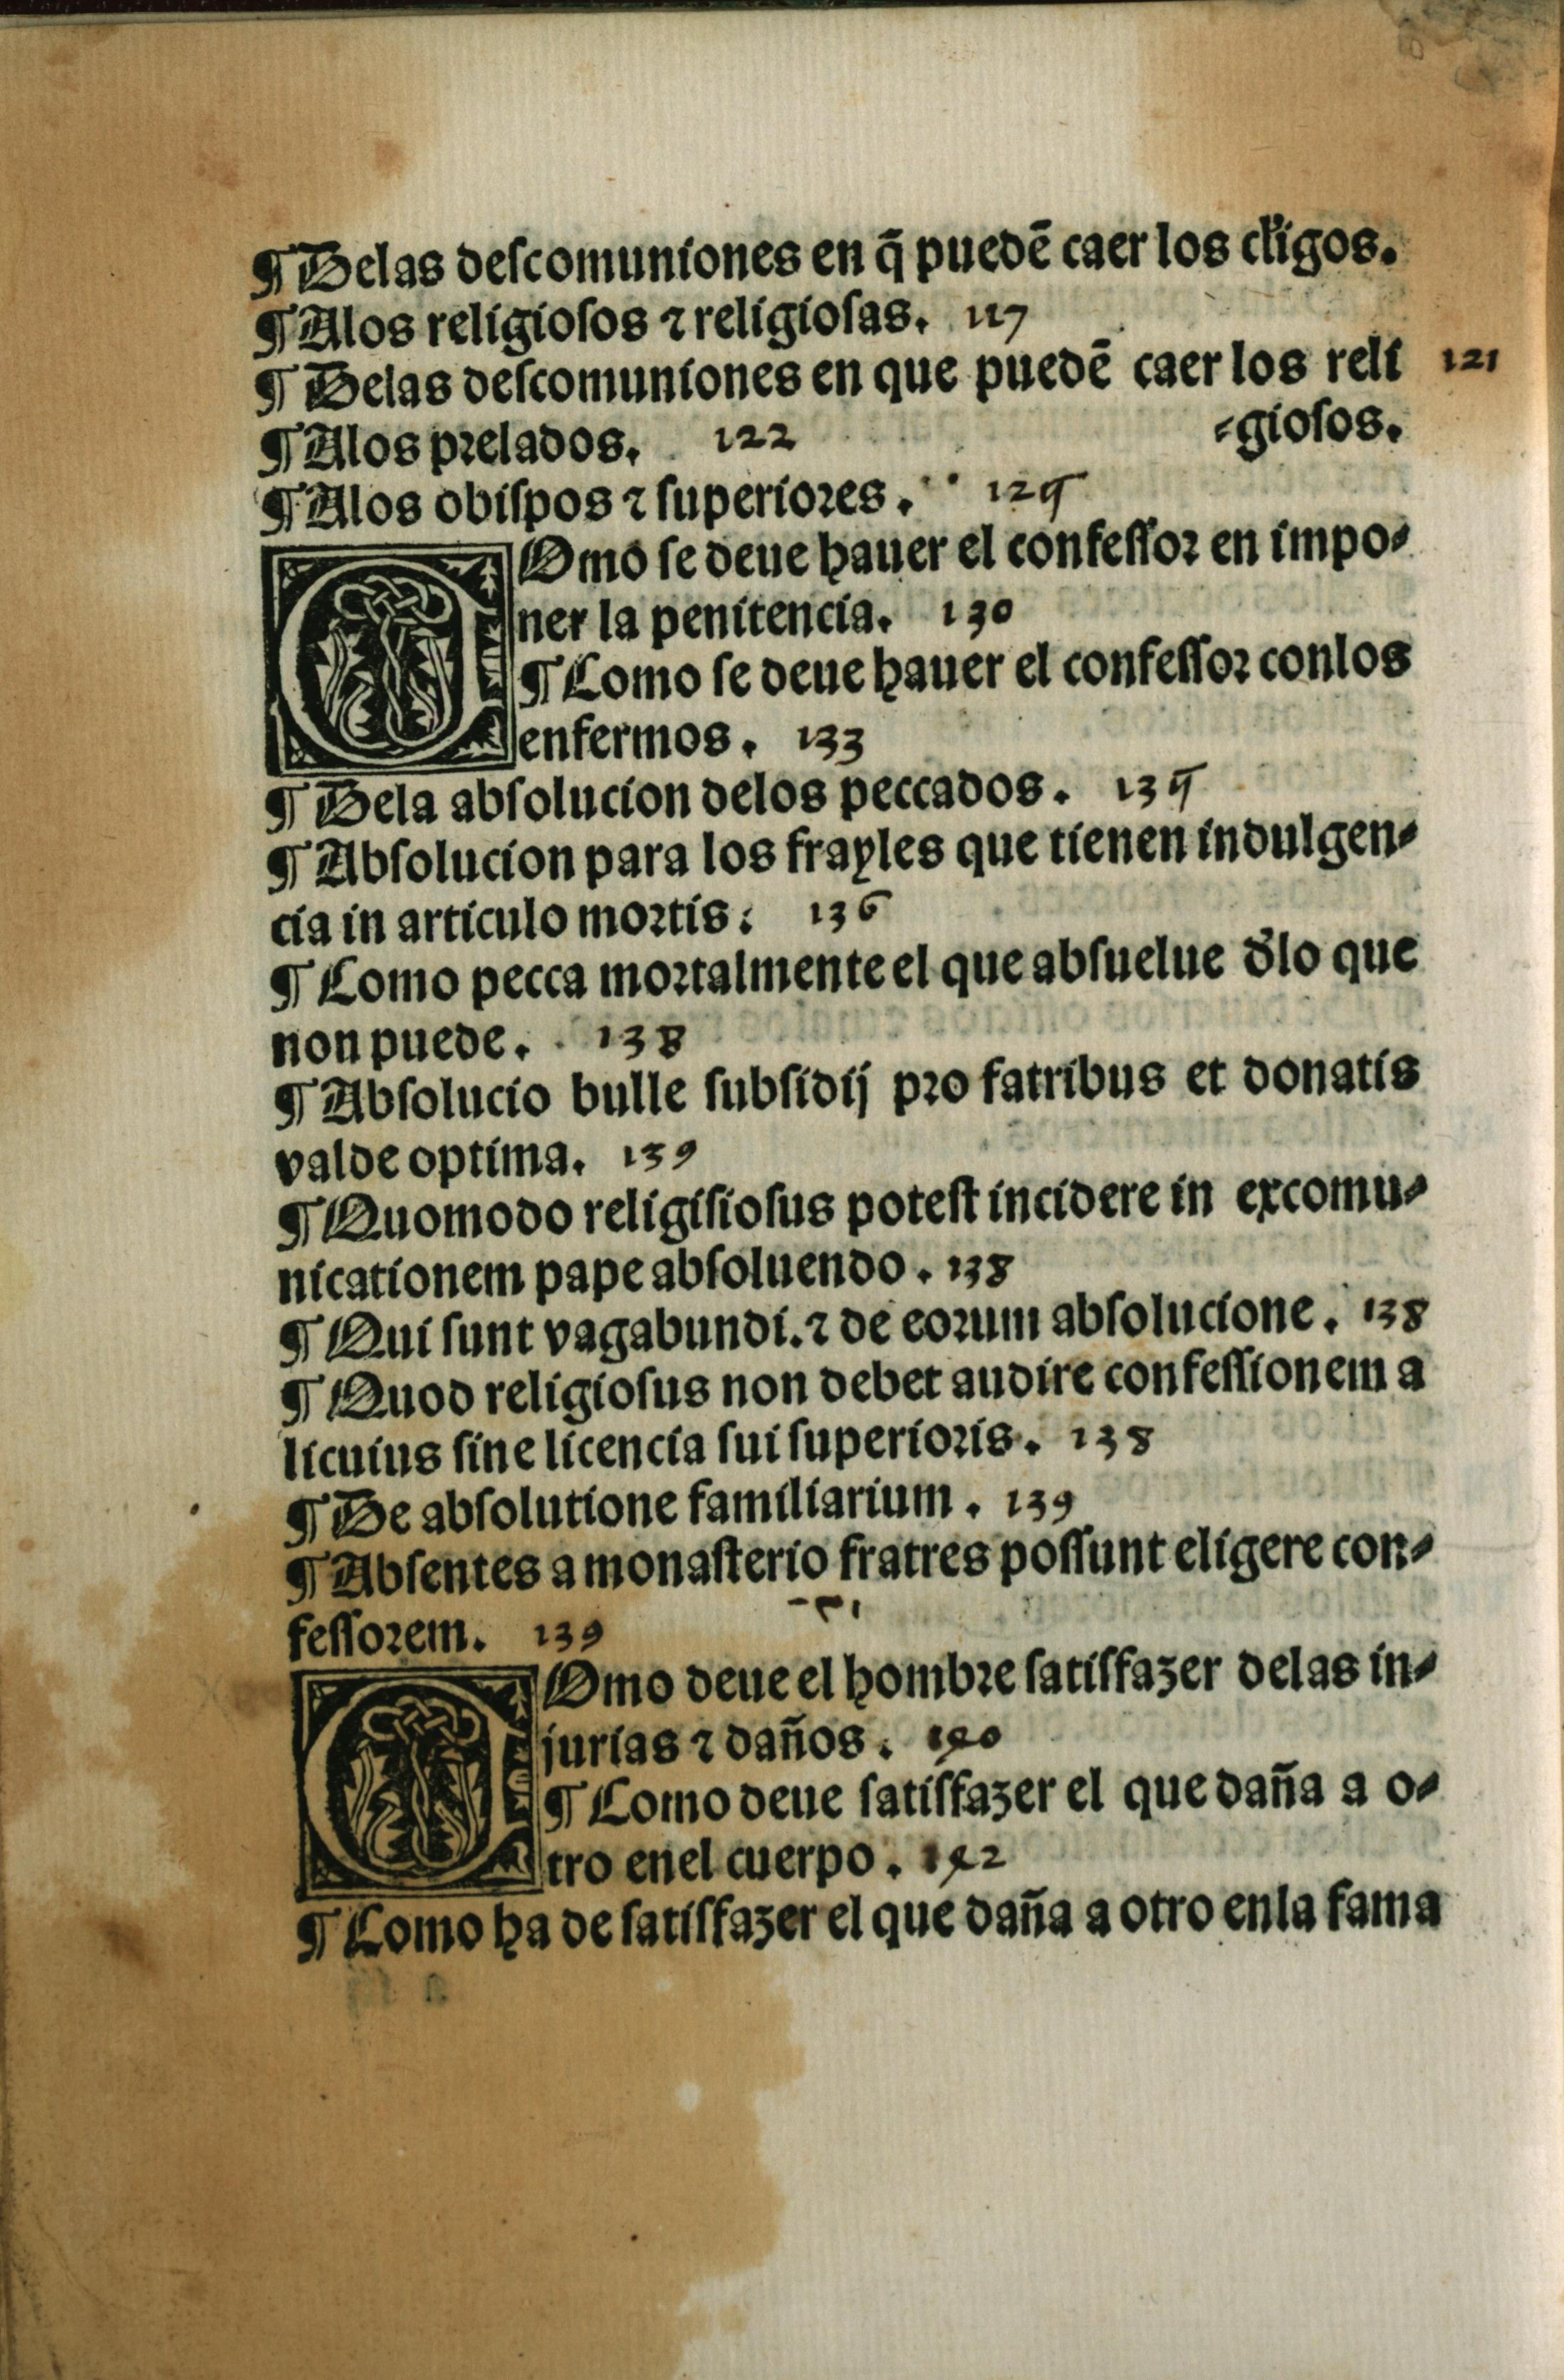 ¶ Delas deſcomuniones en q̃ puedẽ caer los cl'igos.
¶ Alos religioſos ⁊ religioſas. 117
¶ Delas deſcomuniones en que puedẽ caer los reli 121
⸗gioſos.
¶ Alos prelados. 122
¶ Alos obiſpos ⁊ ſuperiores. 124
COmo ſe deue hauer el confeſſor en impo⸗
ner la penitencia. 130
¶ Como ſe deue hauer el confeſſor conlos
enfermos. 133
¶ Dela abſolucion delos peccados. 134
¶ Abſolucion para los frayles que tienen indulgen⸗
cia in articulo mortis: 136
¶ Como pecca mortalmente el que abſuelue d'lo que
non puede. 138
¶ Abſolucio bulle ſubſidij pro fatribus et donatis
valde optima. 139
¶ Quomodo religiſioſus poteſt incidere in excomu⸗
nicationem pape abſoluendo. 138
¶ Qui ſunt vagabundi. ⁊ de eorum abſolucione. 138
¶ Quod religioſus non debet audire confeſſionem a
licuius ſine licencia ſui ſuperioris. 138
¶ De abſolutione familiarium. 139
¶ Abſentes a monaſterio fratres poſſunt eligere con⸗
feſſorem. 139
COmo deue el hombre ſatiſfazer delas in⸗
jurias ⁊ daños. 140
¶ Como deue ſatiſfazer el que daña a o⸗
tro enel cuerpo. 142
¶ Como ha de ſatiſfazer el que daña a otro enla fama